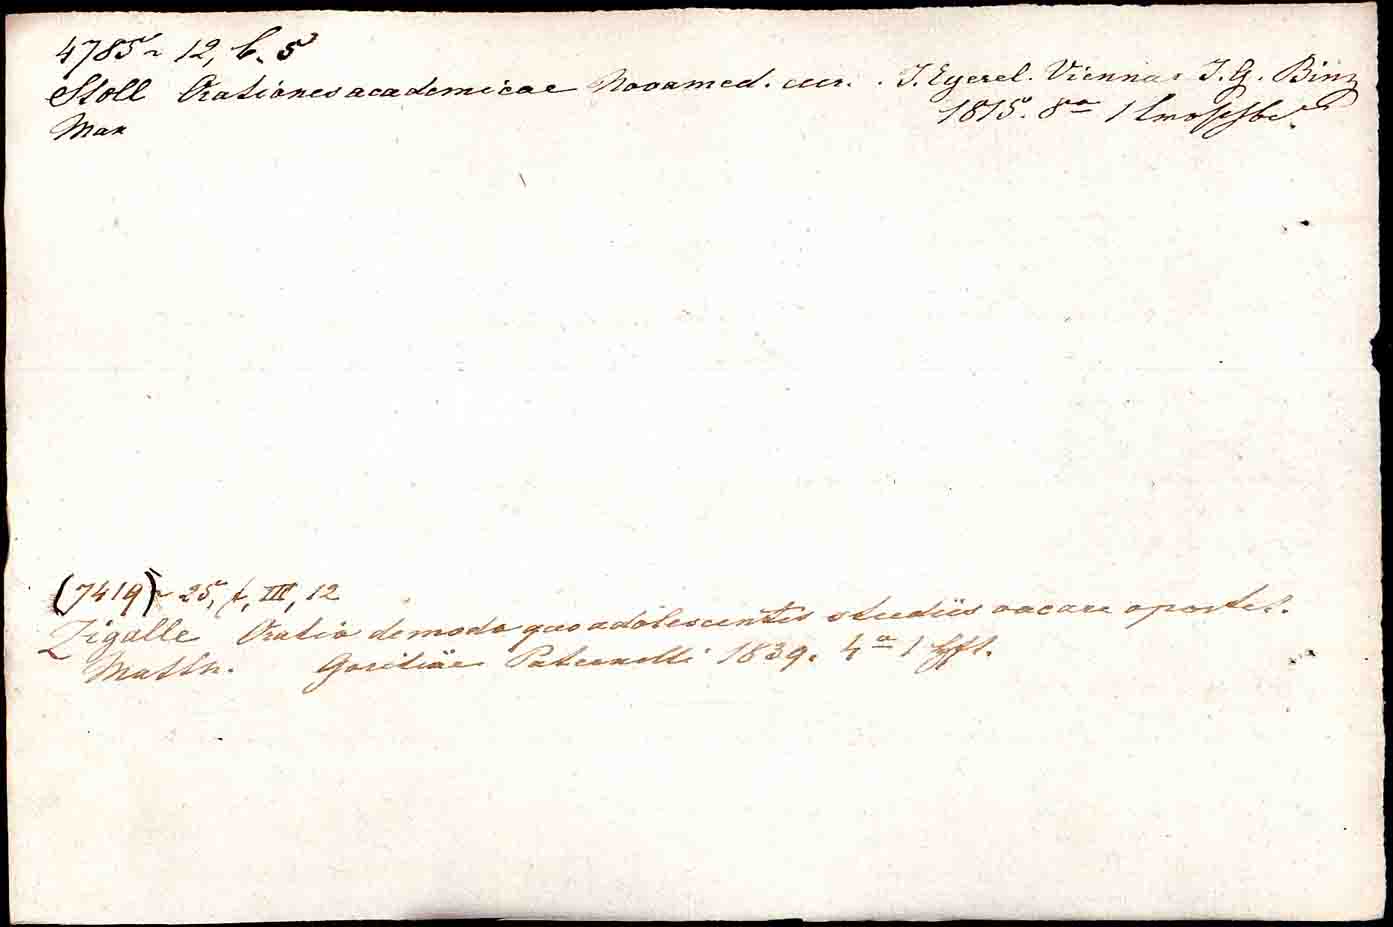 4785 ~ 12, b. 5
Stoll Orationes academicae Nova med. cur. . J. Eyerel. Viennae J. G. Binz
Max 1815. 8°
(7419) ~ 25, f, III, 12
Zigalle Oratio de modo quo adolescentes studiis vacare oportet.
Math. Goritiae Paternolli 1839. 4° 1 Hft.